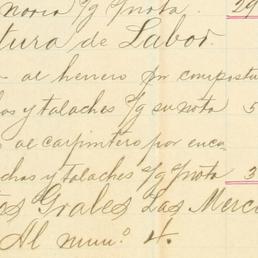 noria s/g nota. 29
tura de Labor.
al herrero por compostu
hos y talaches s/g su nota 5
al carpintero por enca
chas y talaches s/g nota 3
tos Grales Las Merce
Al num.º 4.